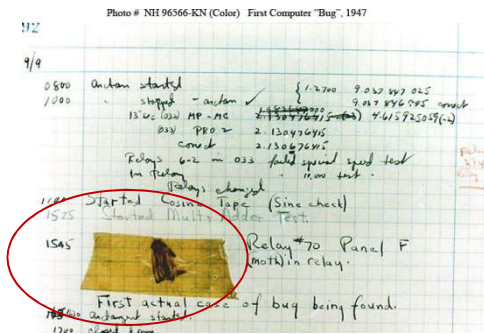 Photo # NH 96566-KN (Color) First Computer "Bug", 1947
92
9/9
0800 Antan started
1000 " stopped - antan ✓ { 1.2700 9.037 847 025
9.037 846 995 conect
13"uc (032) MP - MC 2.130476415 4.615925059(-2)
(033) PRO 2 2.130476415
conect 2.130676415
Relays 6-2 in 033 failed special speed test
In Relay " 11,000 test.
Relays changed
Started Cosine Tape (Sine check)
1525 Started Multi Adder Test.
1545 Relay #70 Panel F
(moth) in relay.
First actual case of bug being found.
antangent started.
1700 closed down.